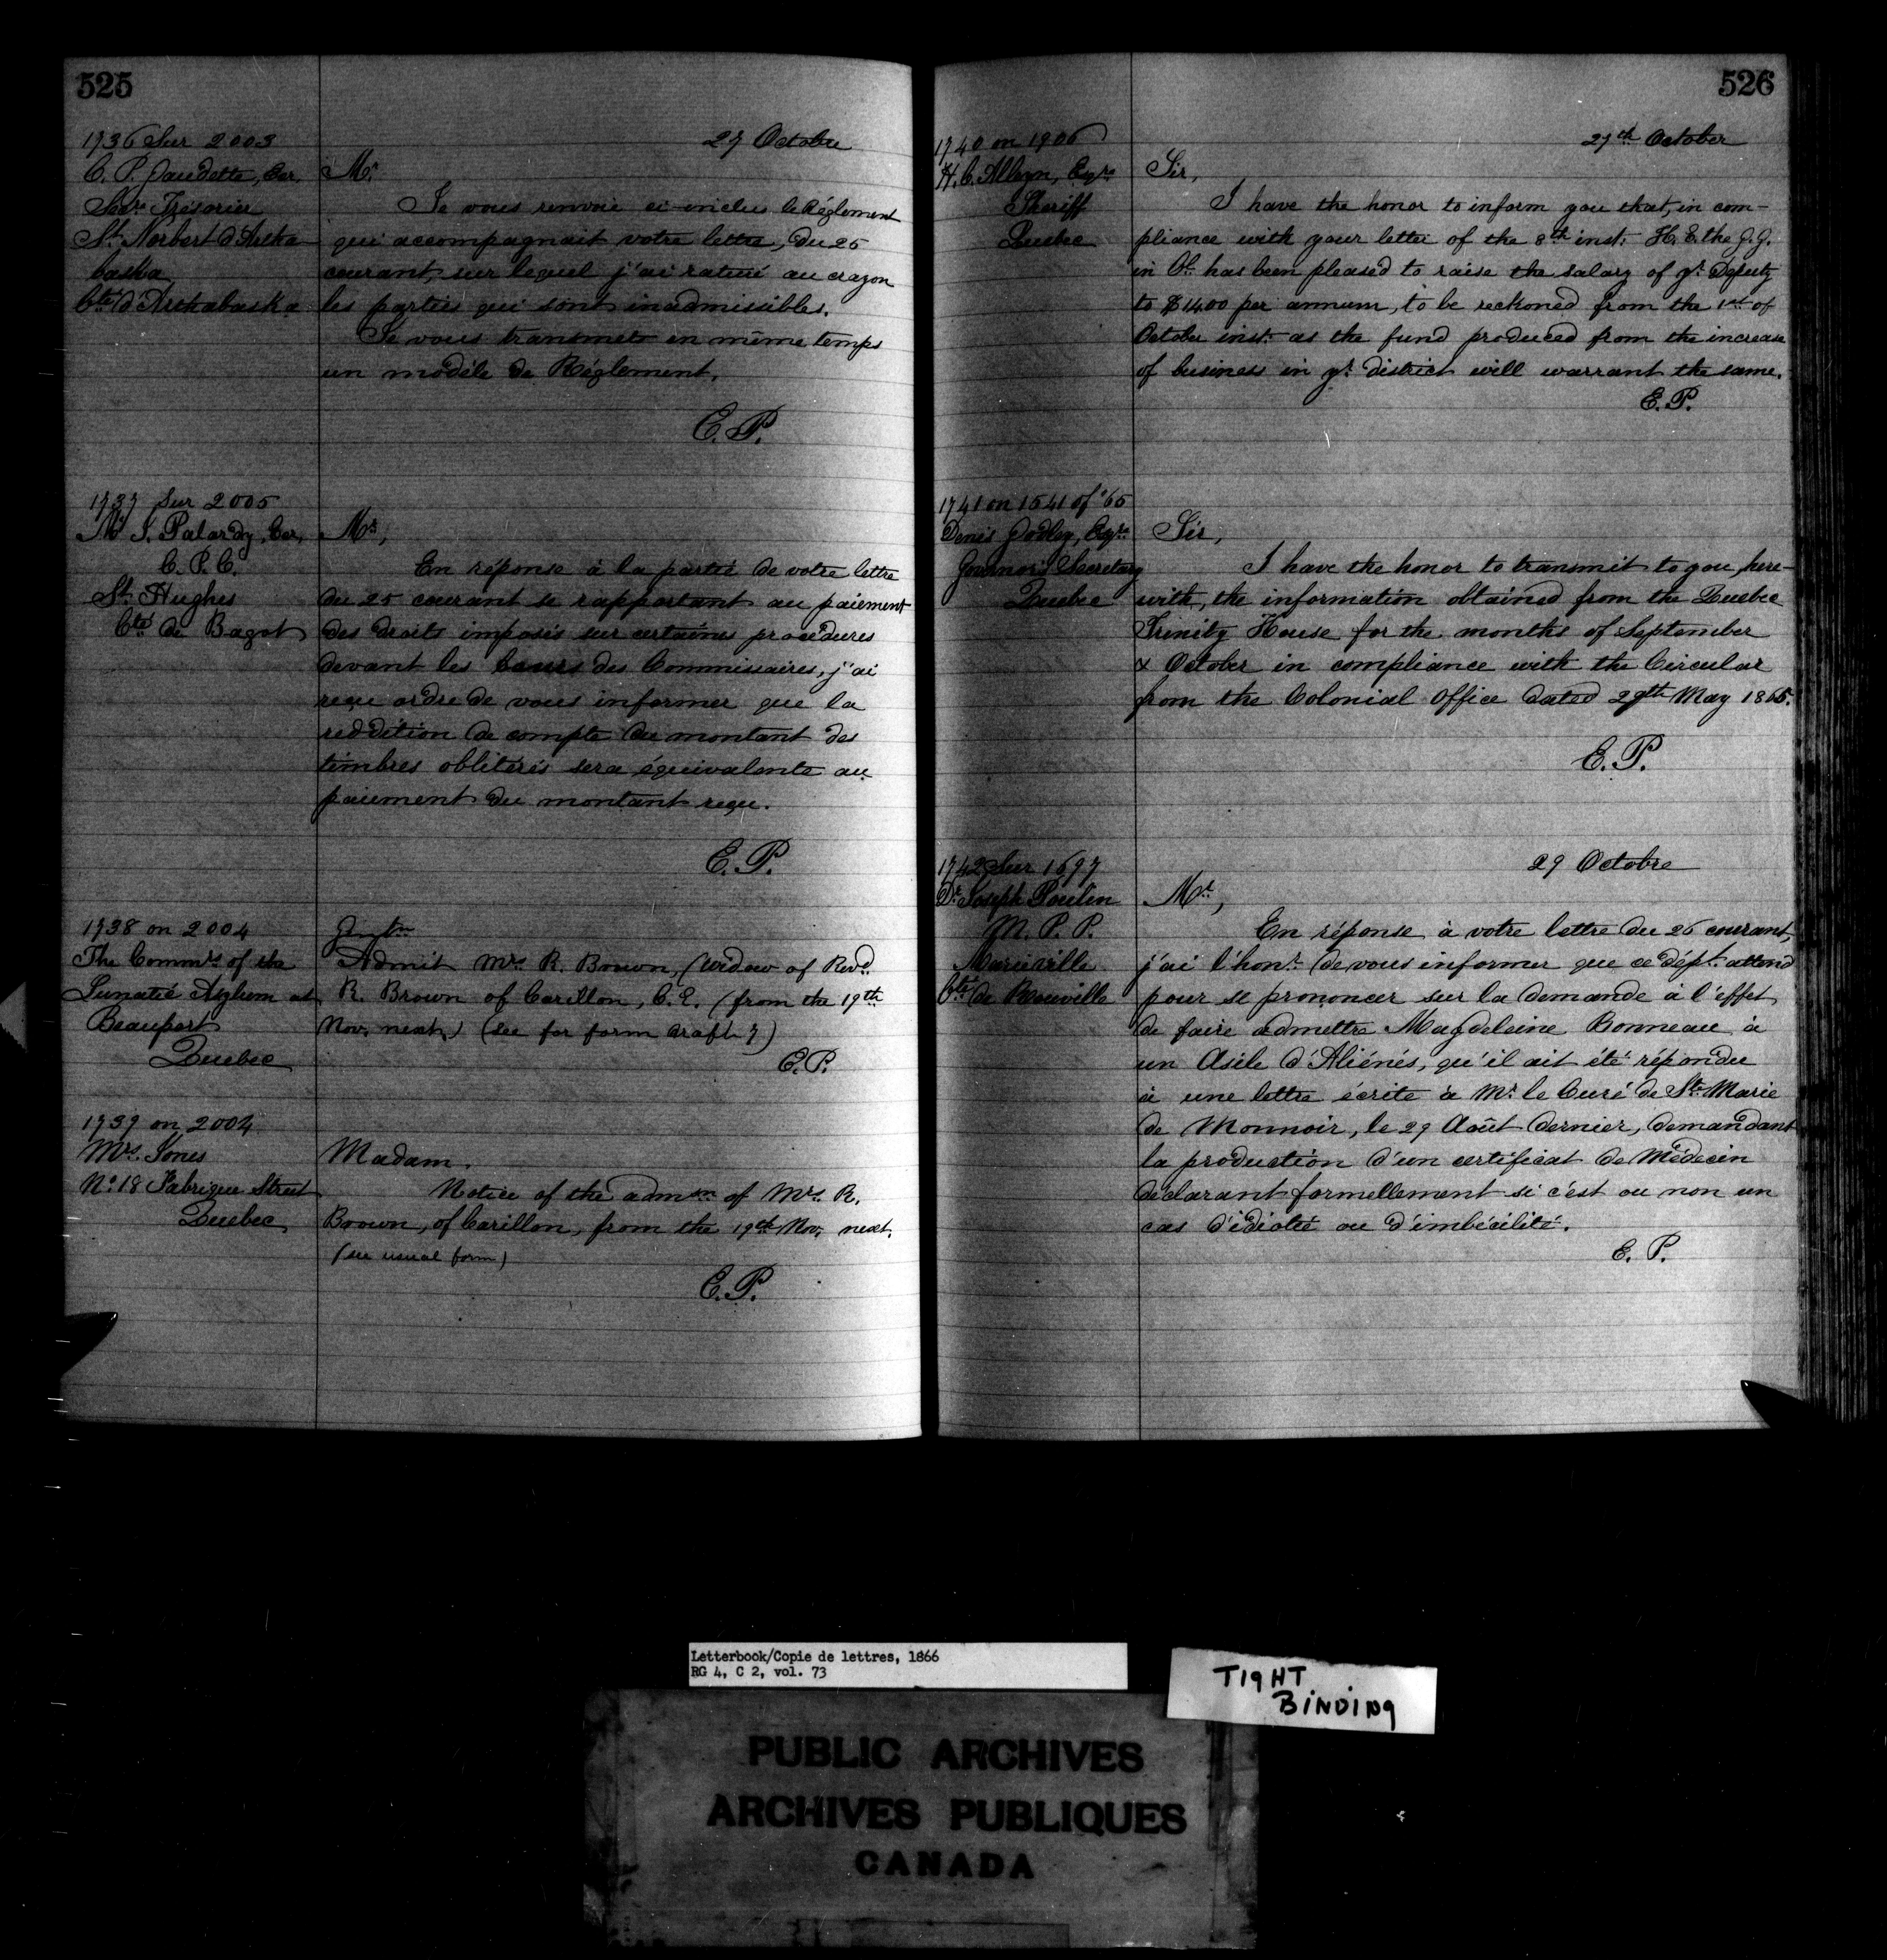 525
1736 Sur 2003
27 Octobre
C. P. Gaudette, Ecr.
Secre. Trésorier
St. Norbert d'Artha
baska
Cté d'Arthabaska
Mr.
Je vous renvoie ci-inclus le Réglement
qui accompagnait votre lettre, du 25
courant, sur lequel j'ai raturé au crayon
les parties qui sont inadmissibles.
Je vous transmets en même temps
un modèle de Réglement.
E. P.
1737 Sur 2005
Mr. J. Palardy, Ecr,
C. P. C.
St. Hughes
Cté de Bagot
Mr,
En réponse à la partie de votre lettre
du 25 courant se rapportant au paiement
des droits imposés sur certaines procédures
devant les Cours des Commissaires, j'ai
reçu ordre de vous informer que la
reddition de compte du montant des
timbres oblitérés sera équivalente au
paiement du montant reçu.
E. P.
1738 on 2004
The Commrs of the
Lunatic Asylum at
Beauport
Quebec
Gentn
Admit Mrs. R. Brown, (widow of Revd
R. Brown of Carillon, C. E. (from the 19th
Nov. next,) (see for form draft 7)
E. P.
1739 on 2004
Mrs. Jones
No. 18 Fabrique Street
Quebec
Madam.
Notice of the admon of Mrs. R.
Brown, of Carillon, from the 19th Nov. next.
(see usual form)
E. P.
526
1740 on 1906
27th October
H. C. Alleyn, Esqre
Sheriff
Quebec
Sir,
I have the honor to inform you that, in com-
pliance with your letter of the 8th inst: H. E. the G. G.
in Cl. has been pleased to raise the salary of yr. Deputy
to $1400 per annum, to be reckoned from the 1st of
October inst: as the fund produced from the increase
of business in yr. district will warrant the same.
E. P.
1741 on 1541 of '65
Denis Godley, Esqre
Governor's Secretary
Quebec
Sir,
I have the honor to transmit to you, here-
with, the information obtained from the Quebec
Trinity House for the months of September
& October in compliance with the Circular
from the Colonial Office dated 29th May 1865.
E. P.
1742 Sur 1697
29 Octobre
Dr. Joseph Poulin
M. P. P.
Marieville
Cté de Rouville
Mr,
En réponse à votre lettre du 26 courant,
j'ai l'honr. de vous informer que ce dépt. attend
pour se prononcer sur la demande à l'effet
de faire admettre Magdeleine Bonneau à
un Asile d'Aliénés, qu'il ait été répondu
à une lettre écrite à Mr. le Curé de Ste Marie
de Monnoir, le 29 Août dernier, demandant
la production d'un certificat de Médecin
déclarant formellement si c'est ou non un
cas d'idiotie ou d'imbécilité.
E. P.
Letterbook/Copie de lettres, 1866
RG 4, C 2, vol. 73
TIGHT
BINDING
PUBLIC ARCHIVES
ARCHIVES PUBLIQUES
CANADA